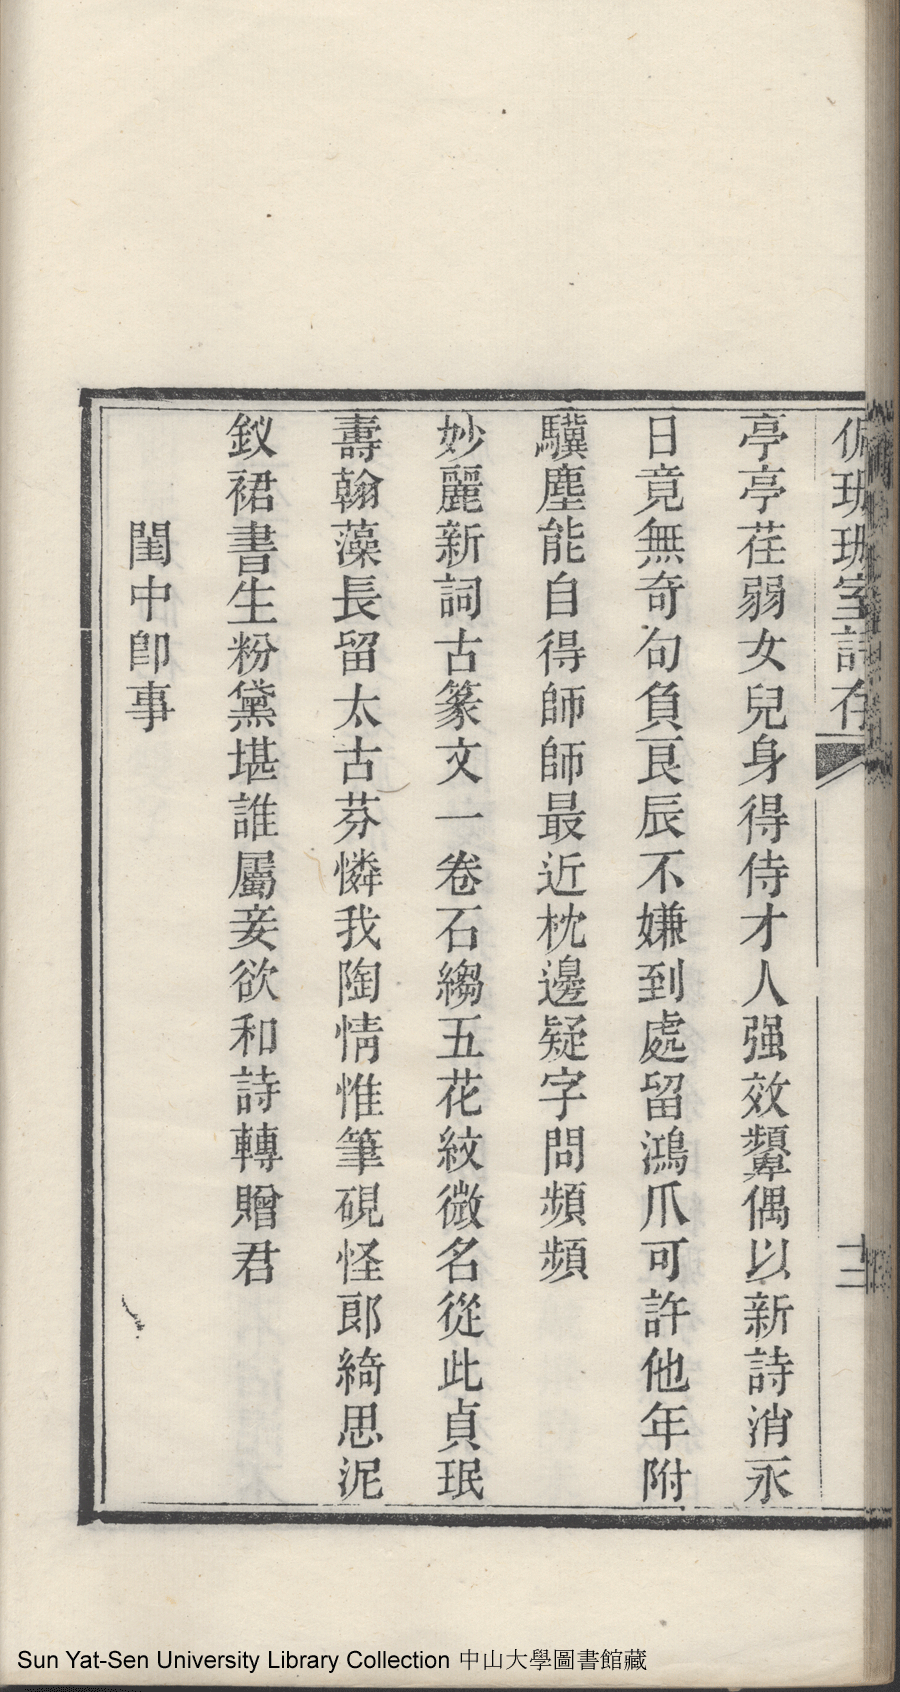 亭亭荏弱女兒身得侍才人强效顰偶以新詩消永
日竟無奇句負良辰不嫌到處留鴻爪可許他年附
驥塵能自得師師最近枕邊疑字問頻頻
妙麗新詞古篆文一卷石縐五花紋微名從此貞珉
壽翰藻長留太古芬憐我陶情惟筆硯怪郎綺思泥
釵裙書生粉黛堪誰屬妾欲和詩轉贈君
閨中卽事
Sun Yat-Sen University Library Collection 中山大學圖書館藏